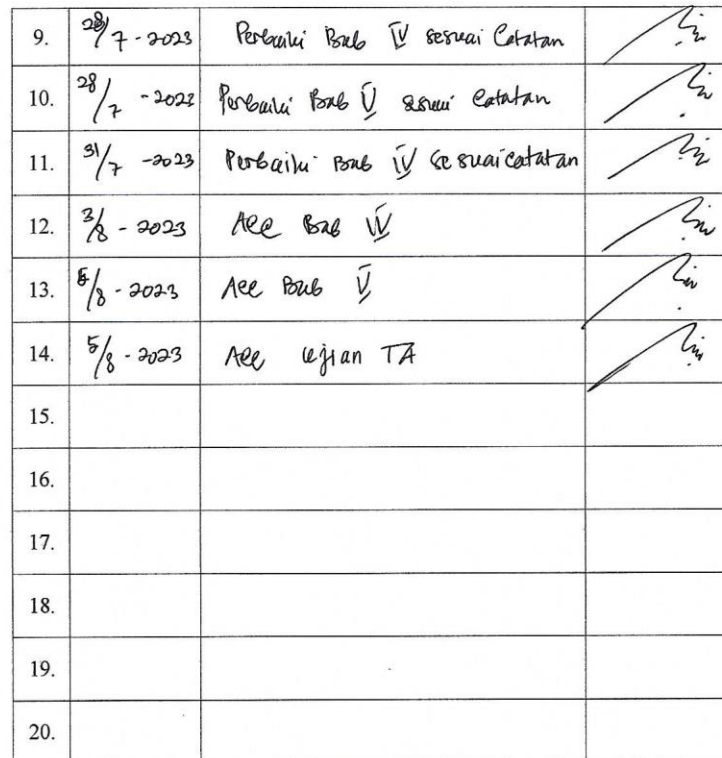 9. 28/7 - 2023 Perbaiki Bab IV sesuai Catatan
10. 28/7 - 2023 Perbaiki Bab V sesuai Catatan
11. 31/7 - 2023 Perbaiki Bab IV sesuai catatan
12. 3/8 - 2023 Acc Bab IV
13. /8 - 2023 Acc Bab V
14. 5/8 - 2023 Acc Ujian TA
15.
16.
17.
18.
19.
20.